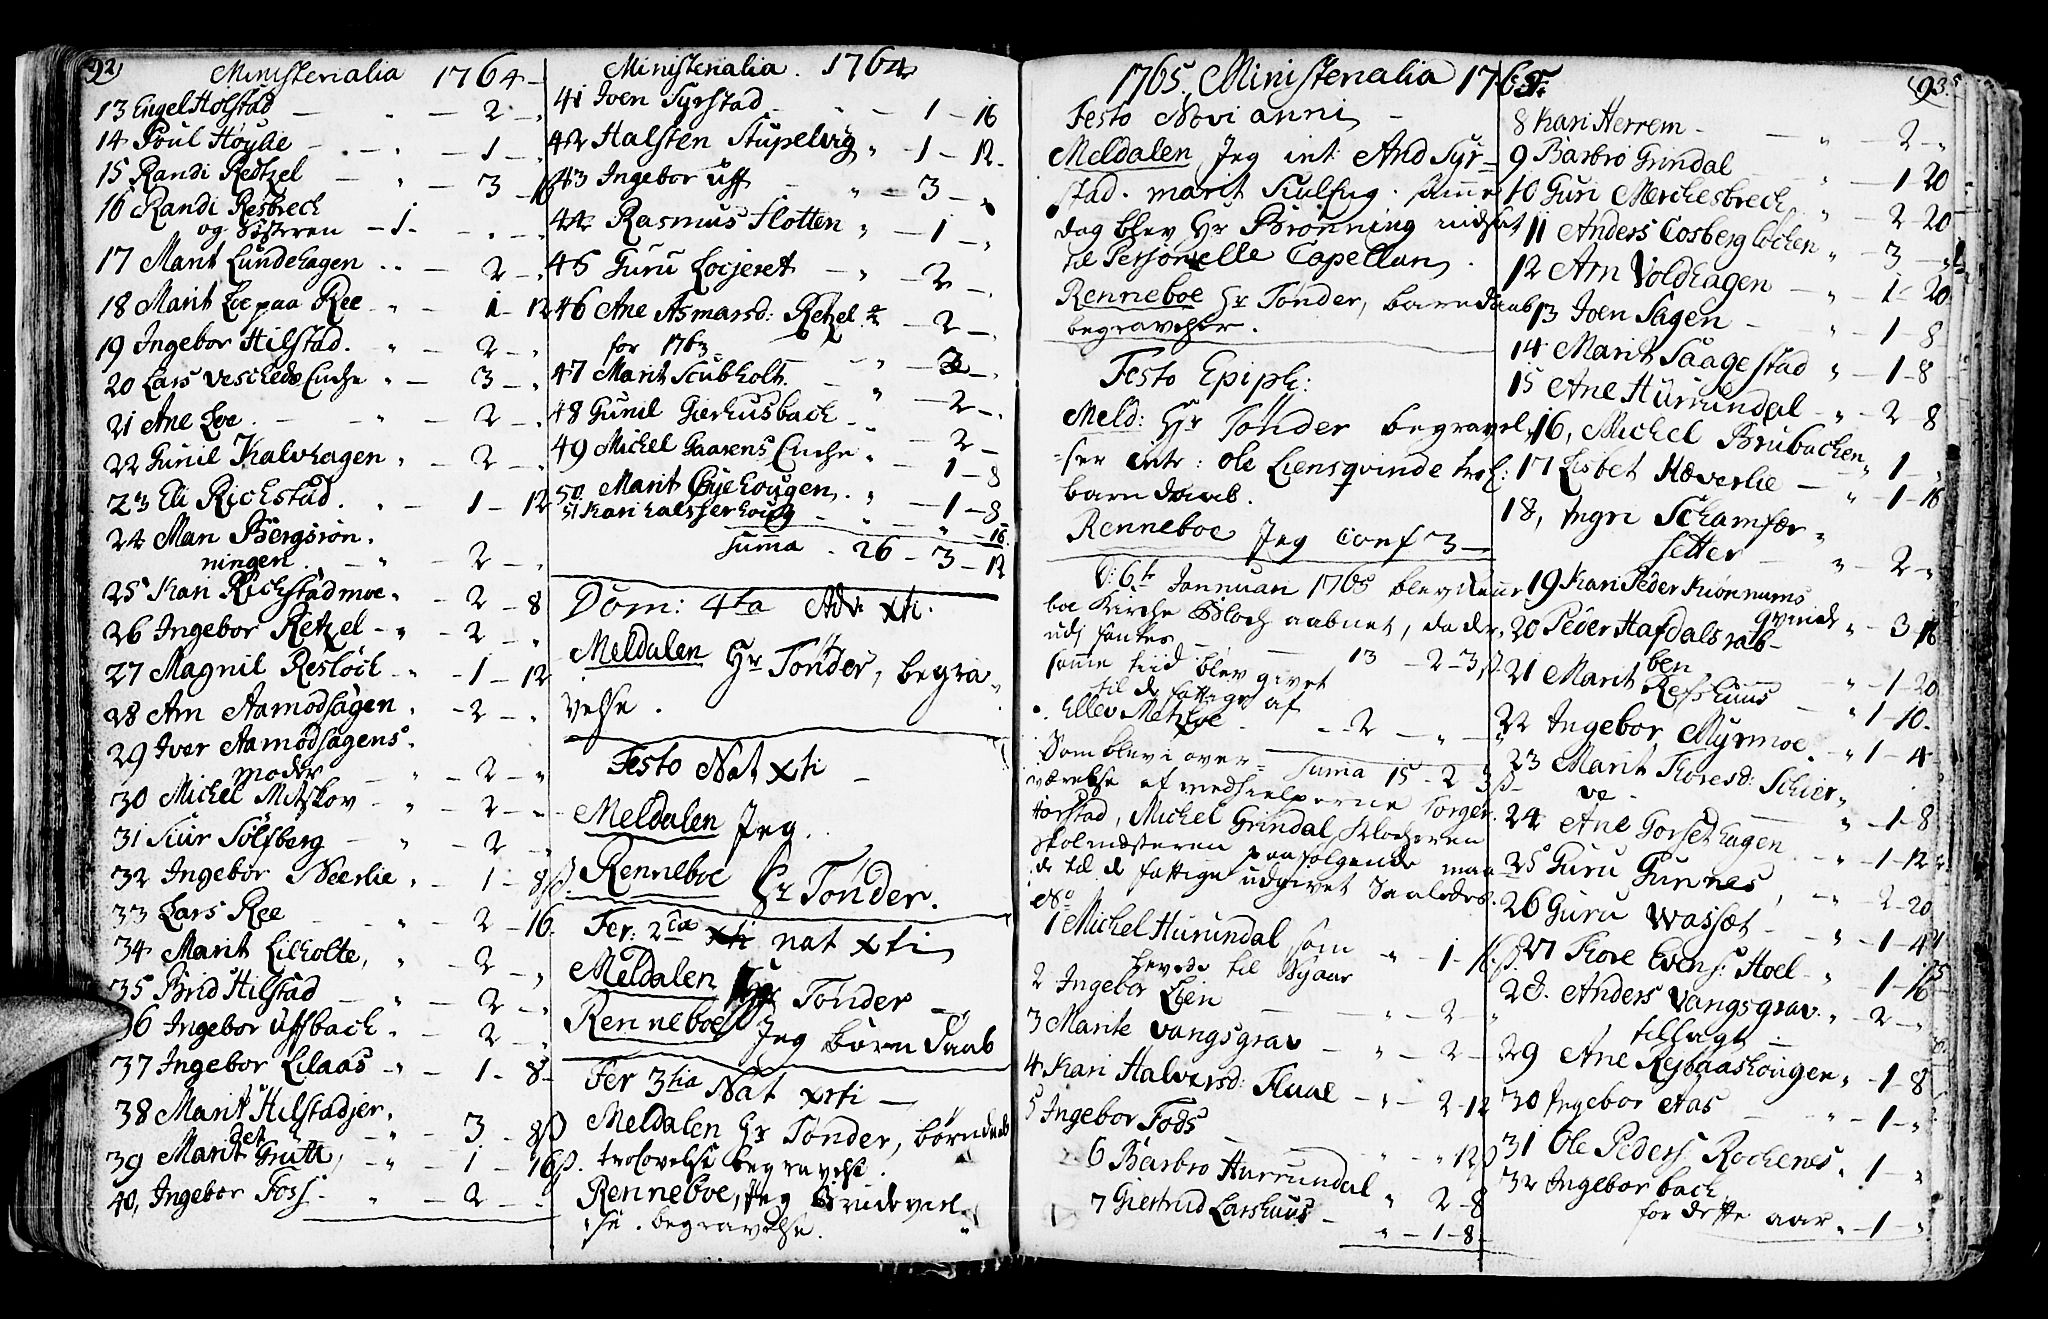 92)
Ministerialia 1764
13 Engel Holstad - 2 -
14 Poul Høylie - 1 -
15 Randi Retzel - 3 - 16
16 Randi Resbrech
og Søsteren - 1 -
17 Marit Lundehagen - 2 -
18 Marit Loe paa Ree - 1 - 12
19 Ingebor Hilstad. - 2 -
20 Lars - 3 -
21 Ane Loe. - 2 -
22 Gunil Kalvhagen - 2 -
23 Eli Richstad. - 1 - 12
24 Mari Bergsrøn-
ningen. - 2 -
25 Kari Richstadmoe - 2 - 8
26 Ingebor Retzel - 2 -
27 Magnil Resløch - 1 - 12
28 Arn Aamodsagen - 2 -
29 Iver Aamodsagens
moder - 2 -
30 Michel Mitskov - 2 -
31 Siur Solsberg - 2 -
32 Ingebor Neerlie - 1 - 8ß
33 Lars Ree - 2 - 16
34 Marit Lilholte, - 2 -
35 Brid Hilstad - 2 -
36 Ingebor Uffbach - 2 -
37 Ingebor Lilaas - 1 - 8 -
38 Marit Hilstadjer
det - 3 - 8ß
39 Marit Grütt, - 1 - 16ß.
40, Ingebor Foss - 2 -
Ministerialia. 1764
41 Joen Syrstad - 1 - 16
42 Halsten Stupelvig - 1 - 12.
43 Ingebor Uff - 3 -
44 Rasmus Flotten - 1 -
45 Guru Locjeret - 2 -
46 Ane Asmarsd: Retzel - 2 -
for 1763 - 3 -
47 Marit Scubholt. - 2 -
48 Gunil Gierhusbach - 2 -
49 Michel Gaarens Enche - 1 - 8
50 Marit Byehougen. - 1 - 8
51 Kari halsserhoug - 16
Summa. 26 - 3 - 12
Dom: 4ta Adv. xti.
Meldalen Hr Tønder, begra-
velse.
Festo Nat xti -
Meldalen Jeg.
Renneboe Hr Tønder.
Fer: 2da nat xti
Meldalen Hr Tønder -
Renneboe Jeg børn Daab
Fer 3tia Nat xrti -
Meldalen Hr Tønder, børn daab
trolovelse begravelse.
Renneboe, Jeg Brudeviel-
se. begravelse.
1765, Ministerialia 1765.
93
Festo Novi anni -
Meldalen Jeg int And Syr-
stad. marit samme
dag blev Hr Brønning indsat
til Personelle Capellan.
Renneboe Hr Tønder, barn daab
begravelser.
Festo Epiph:
Meld: Hr Tønder begravel-
ser intr: ole Liensqvinde trol:
barn daab.
Renneboe Jeg conf 3 -
D: 6te Januari 1765 blev Renne-
boe Kirche Bloch aabnet, da der
udj fantes - 13 - 2 - 3ß
samme tiid blev givet
til de fattige af
Ellev Metzoe - 2 -
Som blev i over- Suma 15 - 2 - 3ß
værelse af medhielperne Torger
Horstad, Michel Grindal, Klocheren
skolmesteren paafølgende maa-
de til de fattige udgivet Saaledes.
No
1 Michel Hurundal som - 1 - 16ß
til Byaar
2 Ingebor Lien - 2 -
3 Marite Vangsgrav - 2 -
4 Kari Halvorsd: Fluae - 2 - 12
5 Ingebor Fods - 12ß
6 Barbro Hurrundal - 2 - 8
7 Giertrud Larshuus - 1 - 8 -
8 Kari Herrem - 2 -
9 Barbro Grindal - 1 - 20
10 Guri Merchesbrech - 2 - 20
11 Anders Cosberglochen - 3 -
12 Arn Voldhagen - 1 - 20
13 Joen Sagen - 1 - 8
14 Marit Saagestad - 1 - 8
15 Ane Hurrundal - 2 - 8
16, Michel Brubachen - 1 -
17 Lisbet Hæverlie - 1 - 16
18, Ingri Schamfær
setter - 2 -
19 Kari Peder Kiønnums
qvinde - 3 - 16
20 Peder Hafdalsrab-
ben - 1 - 20
21 Marit Refshuus - 1 - 10.
22 Ingebor Myrmoe. - 1 - 4
23 Marit Thoresd: Schier-
ve - 1 - 8
24 Ane Gorsethagen - 1 - 12
25 Guru Gunnes, - 2 - 20
26 Guru Wassæt - 1 - 4
27 Thore Evens: Hoel - 1 - 16
28. Anders Vangsgrav - 2 -
tillagt -
29 Ane Rejbaashougen - 1 - 8
30 Ingebor Aas - 1 -
31 Ole Peders. Rochenes - 1 -
32 Ingebor bach
for dette aar - 1 -